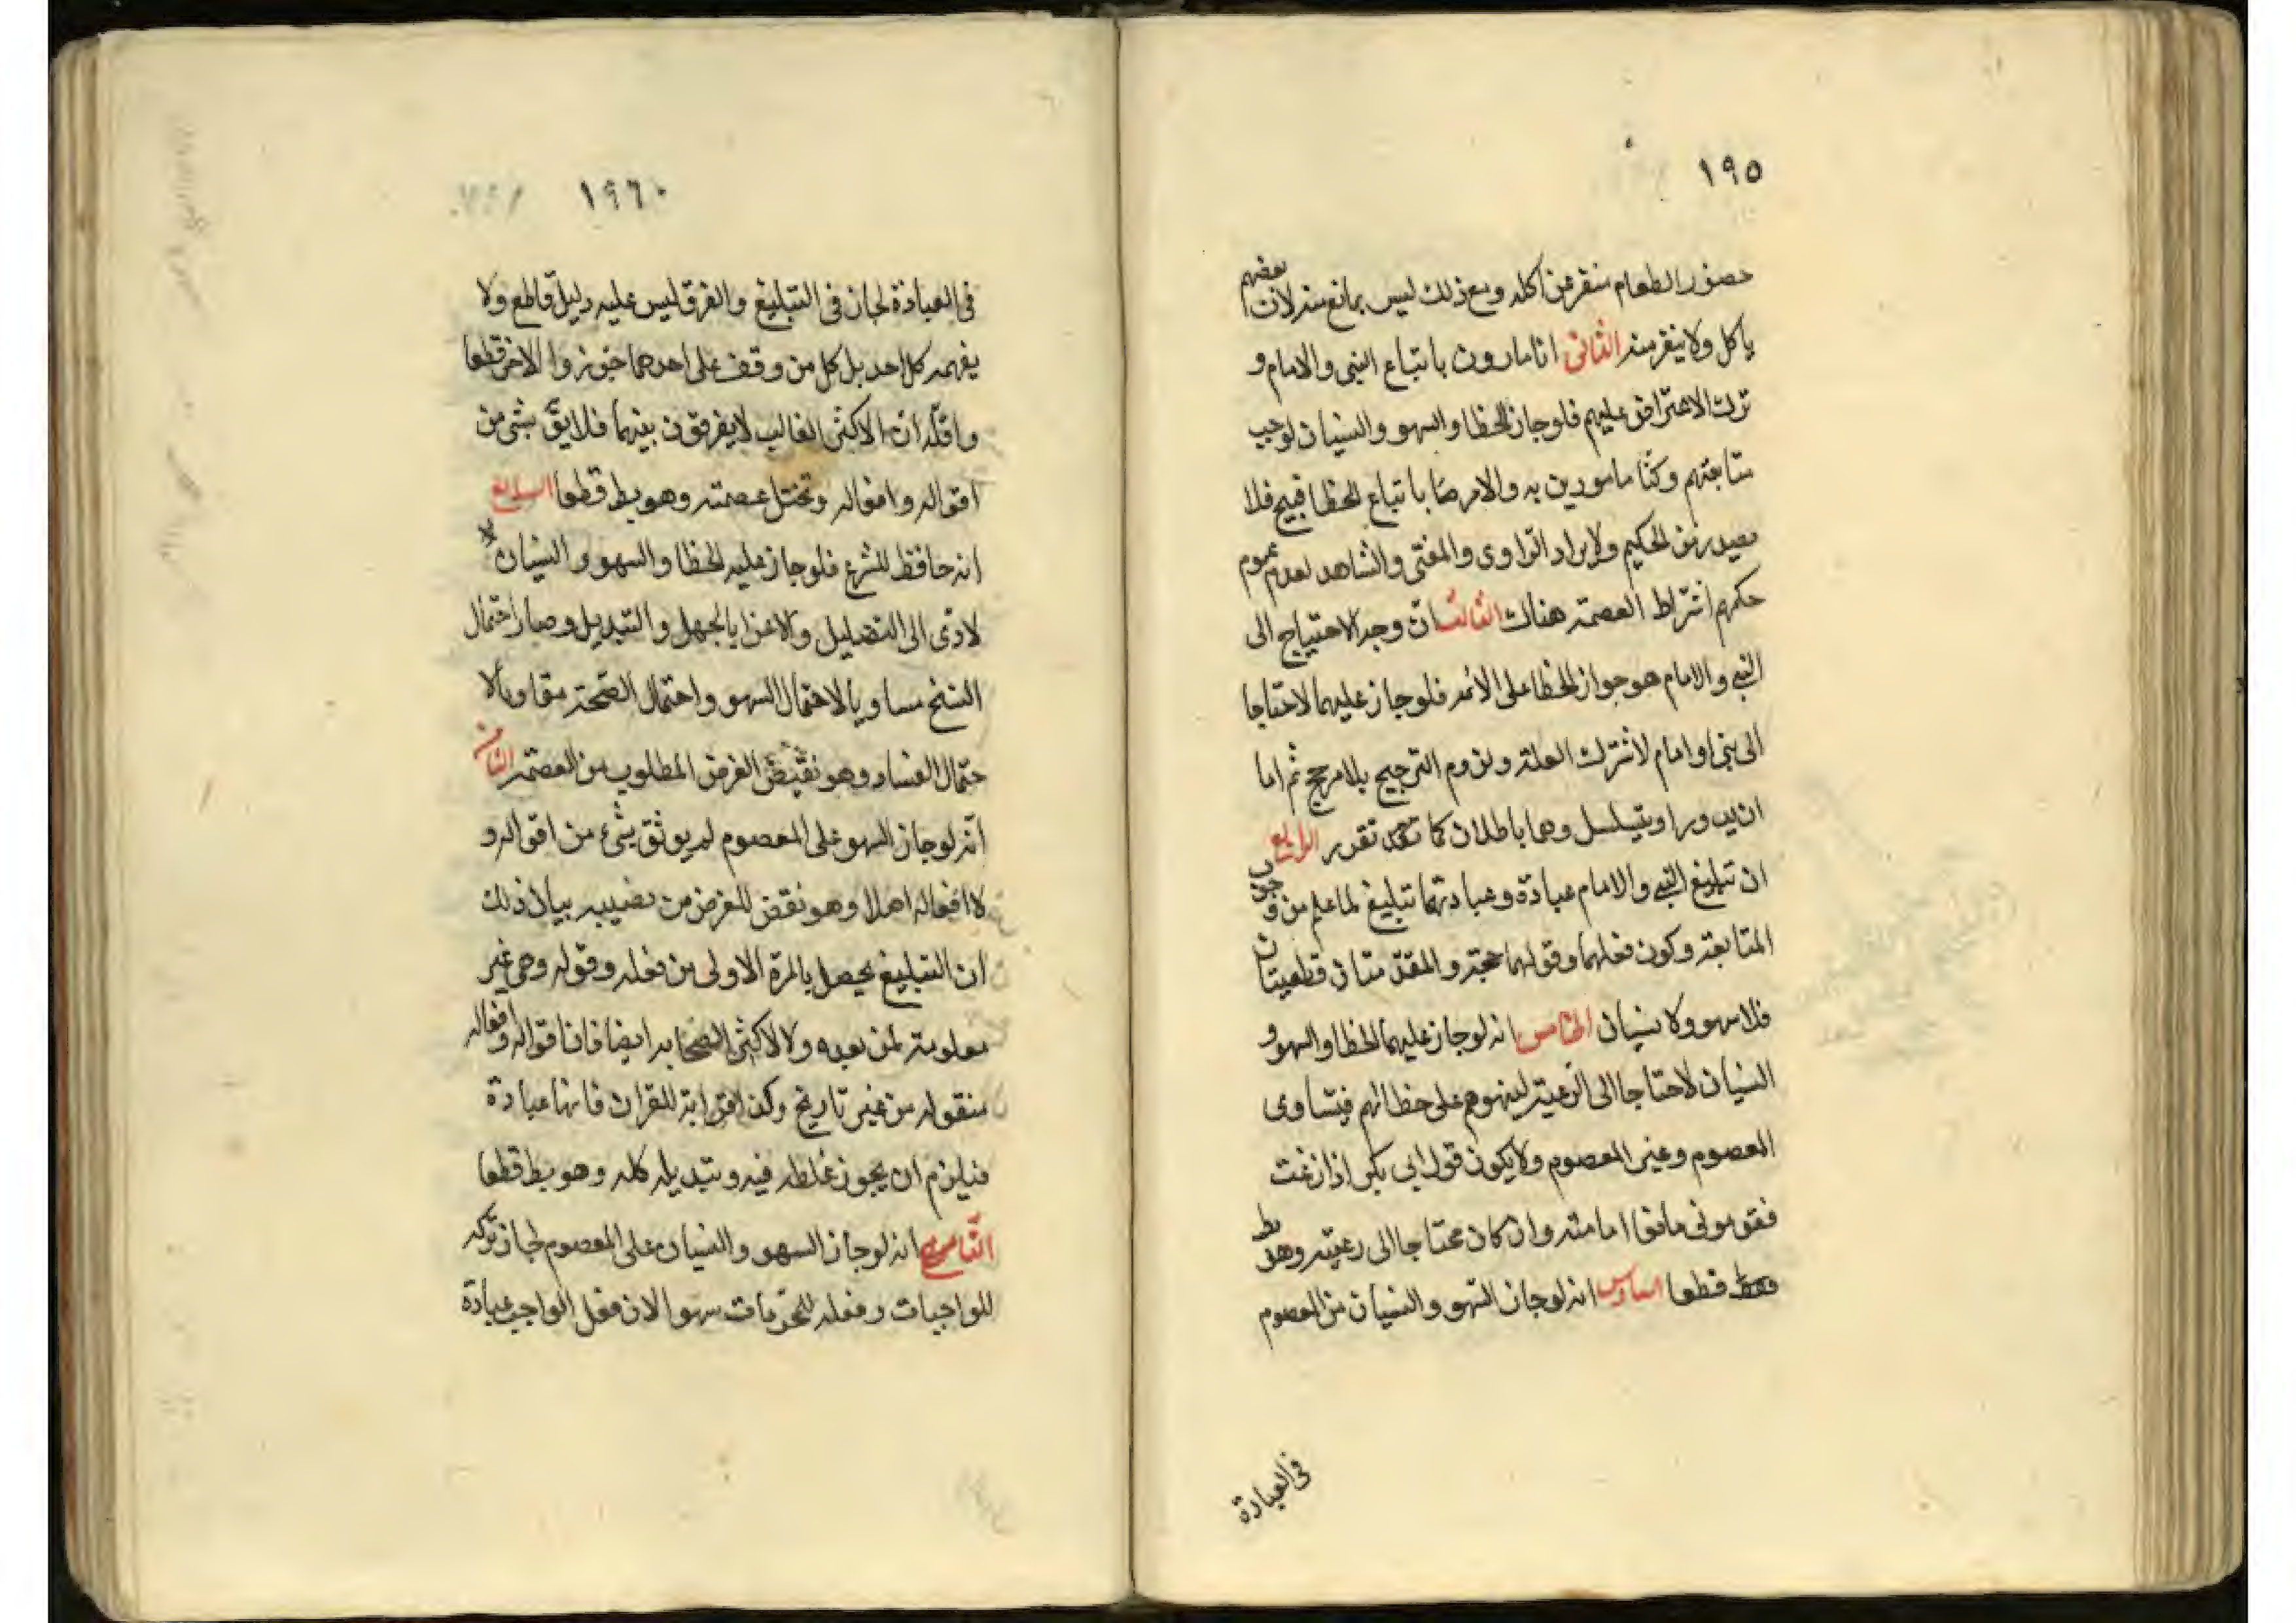 ١٩٥
حضور الطعام منفر عن اكله ومع ذلك ليس بمانع منه لان بعضهم
ياكل ولا ينفر منه الثانى انا مامورون باتباع النبى والامام و
ترك الاعتراض عليهم فلو جاز الخطا والسهو والنسيان لوجب
متابعتهم وكنا مامورين به والامر منا باتباع الخطا قبيح فلا
يصدر من الحكيم ولا يراد الراوى والمفتى والشاهد لعدم عموم
حكمهم اشتراط العصمة هناك الثالث ان وجه الاحتياج الى
النبى والامام هو جواز الخطا على الامة فلو جاز عليهما لاحتاجا
الى نبى او امام لاشتراك العلة ولزوم الترجيح بلا مرجح ثم اما
ان يدورا او يتسلسل وهما باطلان كما تقرر الرابع
ان تبليغ النبى والامام عبادة وعبادتهما تبليغ لما علم من وجوب
المتابعة وكون فعلهما وقولهما حجة والمقدمتان قطعيتان
فلا سهو ولا نسيان الخامس انه لو جاز عليهما الخطا والسهو و
النسيان لاحتاجا الى الرعية لينبهوهم على خطائهم فيتساوى
المعصوم وغير المعصوم ولا يكون قول ابى بكر اذا زغت
فقومونى مانعا امامته وان كان محتاجا الى رعيته وهو بط
قطعا السادس انه لو جاز السهو والنسيان من المعصوم
فى العبادة
١٩٦
فى العبادة لجاز فى التبليغ والفرق ليس عليه دليل قاطع ولا
يفهمه كل احد بل كل من وقف على احدهما جوزوا الاخر قطعا
واقله ان الاكثر الغالب لا يفرقون بينهما فلا يثق بشى من
اقواله وافعاله وتختل عصمته وهو بط قطعا السابع
انه حافظ للشرع فلو جاز عليه الخطا والسهو والنسيان
لادى الى التضليل والاغرا بالجهل والتبديل وصار احتمال
النسخ مساويا لاحتمال السهو واحتمال الصحة مقاوما لا
حتمال الفساد وهو نقيض الغرض المطلوب من العصمة الثامن
انه لو جاز السهو على المعصوم لم يوثق بشىء من اقواله و
لا افعاله اصلا وهو نقض للغرض من نصبه بيان ذلك
ان التبليغ يحصل بالمرة الاولى من فعله وقوله وهى غير
معلومة لمن بعده ولا لاكثر الصحابه ايضا فان اقواله وافعاله
منقوله من غير تاريخ وكذا قراءته للقران فانها عبادة
فيلزم ان يجوز غلطه فيه وتبديله كله وهو بط قطعا
التاسع انه لو جاز السهو والنسيان على المعصوم لجاز تركه
للواجبات وفعله للمحرمات سهوا لان فعل الواجب عبادة